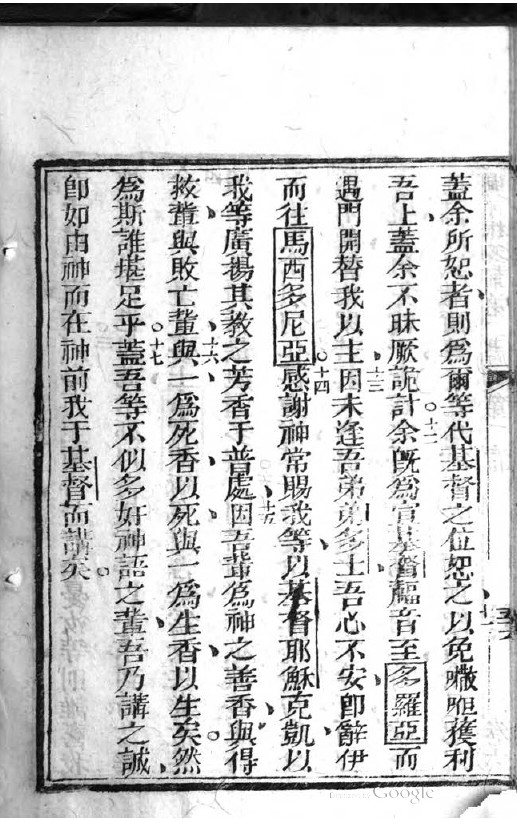 蓋余所恕者則為爾等代基督之位恕之以免撒呾獲利
吾上蓋余不昧厥詭計余既為宣基督福音至多羅亞而
遇門開替我以主因未逢吾弟弟多土吾心不安卽辭伊
而往馬西多尼亞感謝神常賜我等以基督耶穌克凱以
我等廣揚其教之芳香于普處因吾輩為神之善香與得
救輩與敗亡輩與一為死香以死與一為生香以生矣然
為斯誰堪足乎蓋吾等不似多奸神語之輩吾乃講之誠
卽如由神而在神前我于基督而講矣
十一
十二
十三
十四
十五
十六
十七
Google